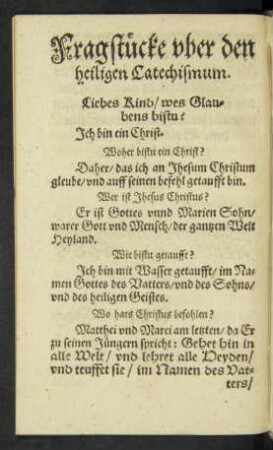 Fragstücke vber den
heiligen Catechismum.
Liebes Kind/ wes Glau-
bens bistu?
Ich bin ein Christ.
Woher bistu ein Christ?
Daher/ das ich an Jhesum Christum
gleube/ vnd auff seinen befehl getaufft bin.
Wer ist Jhesus Christus?
Er ist Gottes vnnd Marien Sohn/
warer Gott vnd Mensch/ der gantzen Welt
Heyland.
Wie bistu getaufft?
Ich bin mit Wasser getaufft/ im Na-
men Gottes des Vatters/ vnd des Sohns/
vnd des heiligen Geistes.
Wo hats Christus befohlen?
Matthei vnd Marci am letzten/ da Er
zu seinen Jüngern spricht: Gehet hin in
alle Welt/ vnd lehret alle Heyden/
vnd teuffet sie/ im Namen des Vat-
ters/